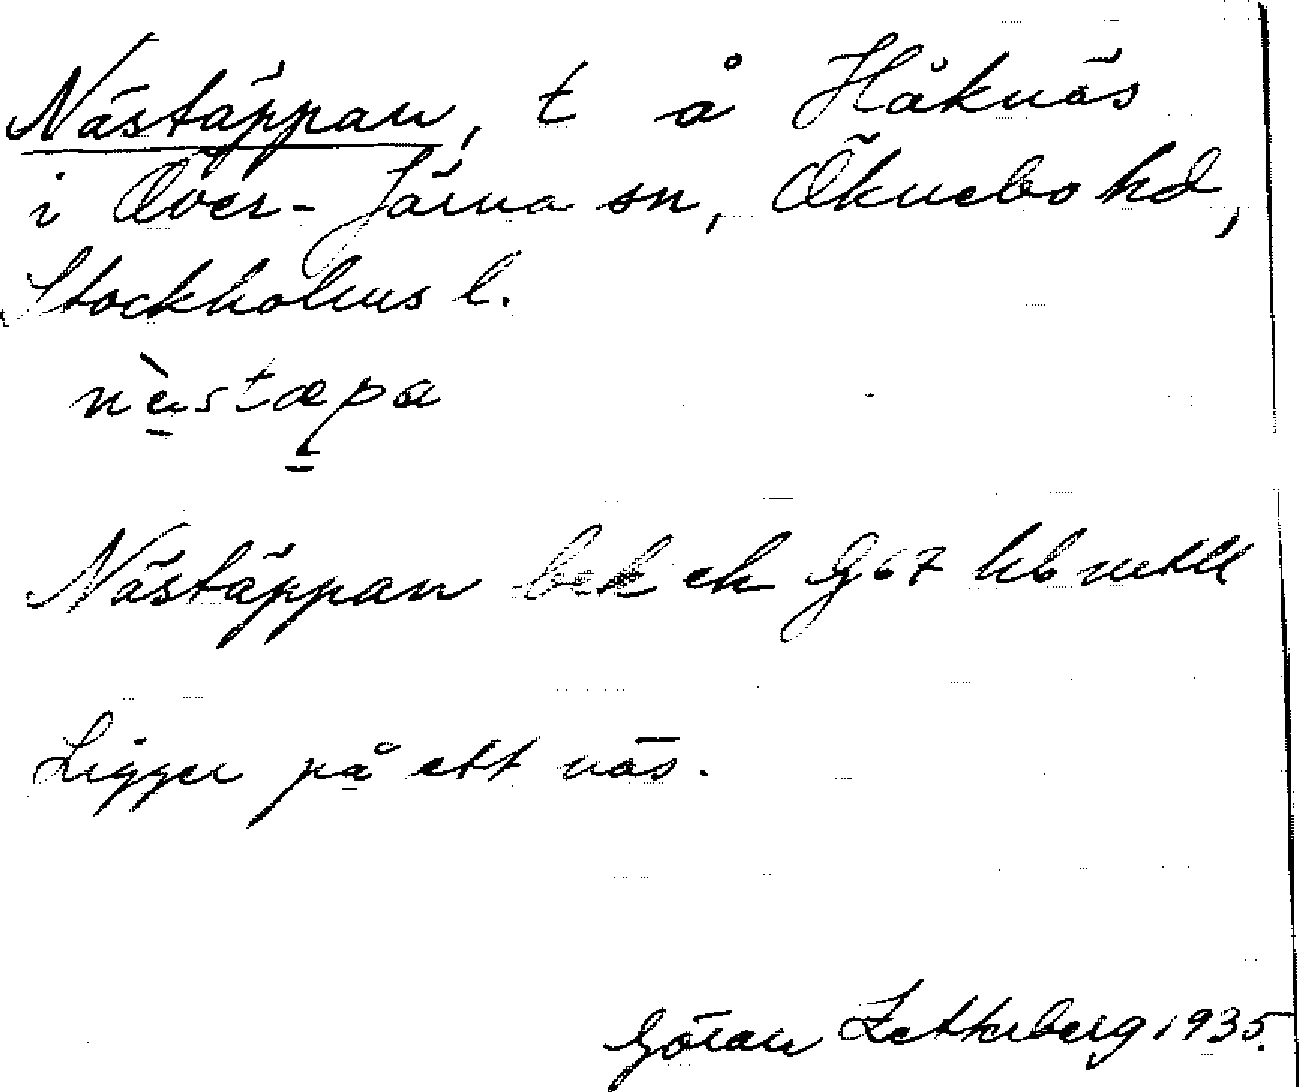 Nästäppan, t å Håknäs
i Över-Järna sn, Öknebo hd,
Stockholms l.
nästæpa
Nästäppan bek ek G67 hb
Ligger på ett näs.
Göran Zetterberg 1935.